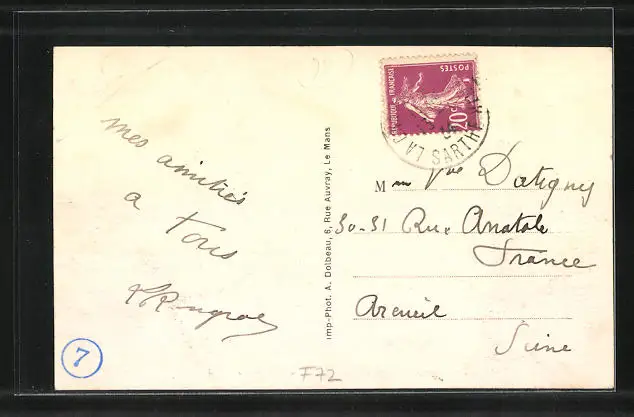 mes amitiés
a
Tous
Imp-Phot. A. Dolbeau, 8, Rue Auvray, Le Mans
RÉPUBLIQUE FRANÇAISE
POSTES
20c
SARTHE
Mme Vve Datigny
30-31 Rue Anatole
France
Arcueil
Seine
7
F72